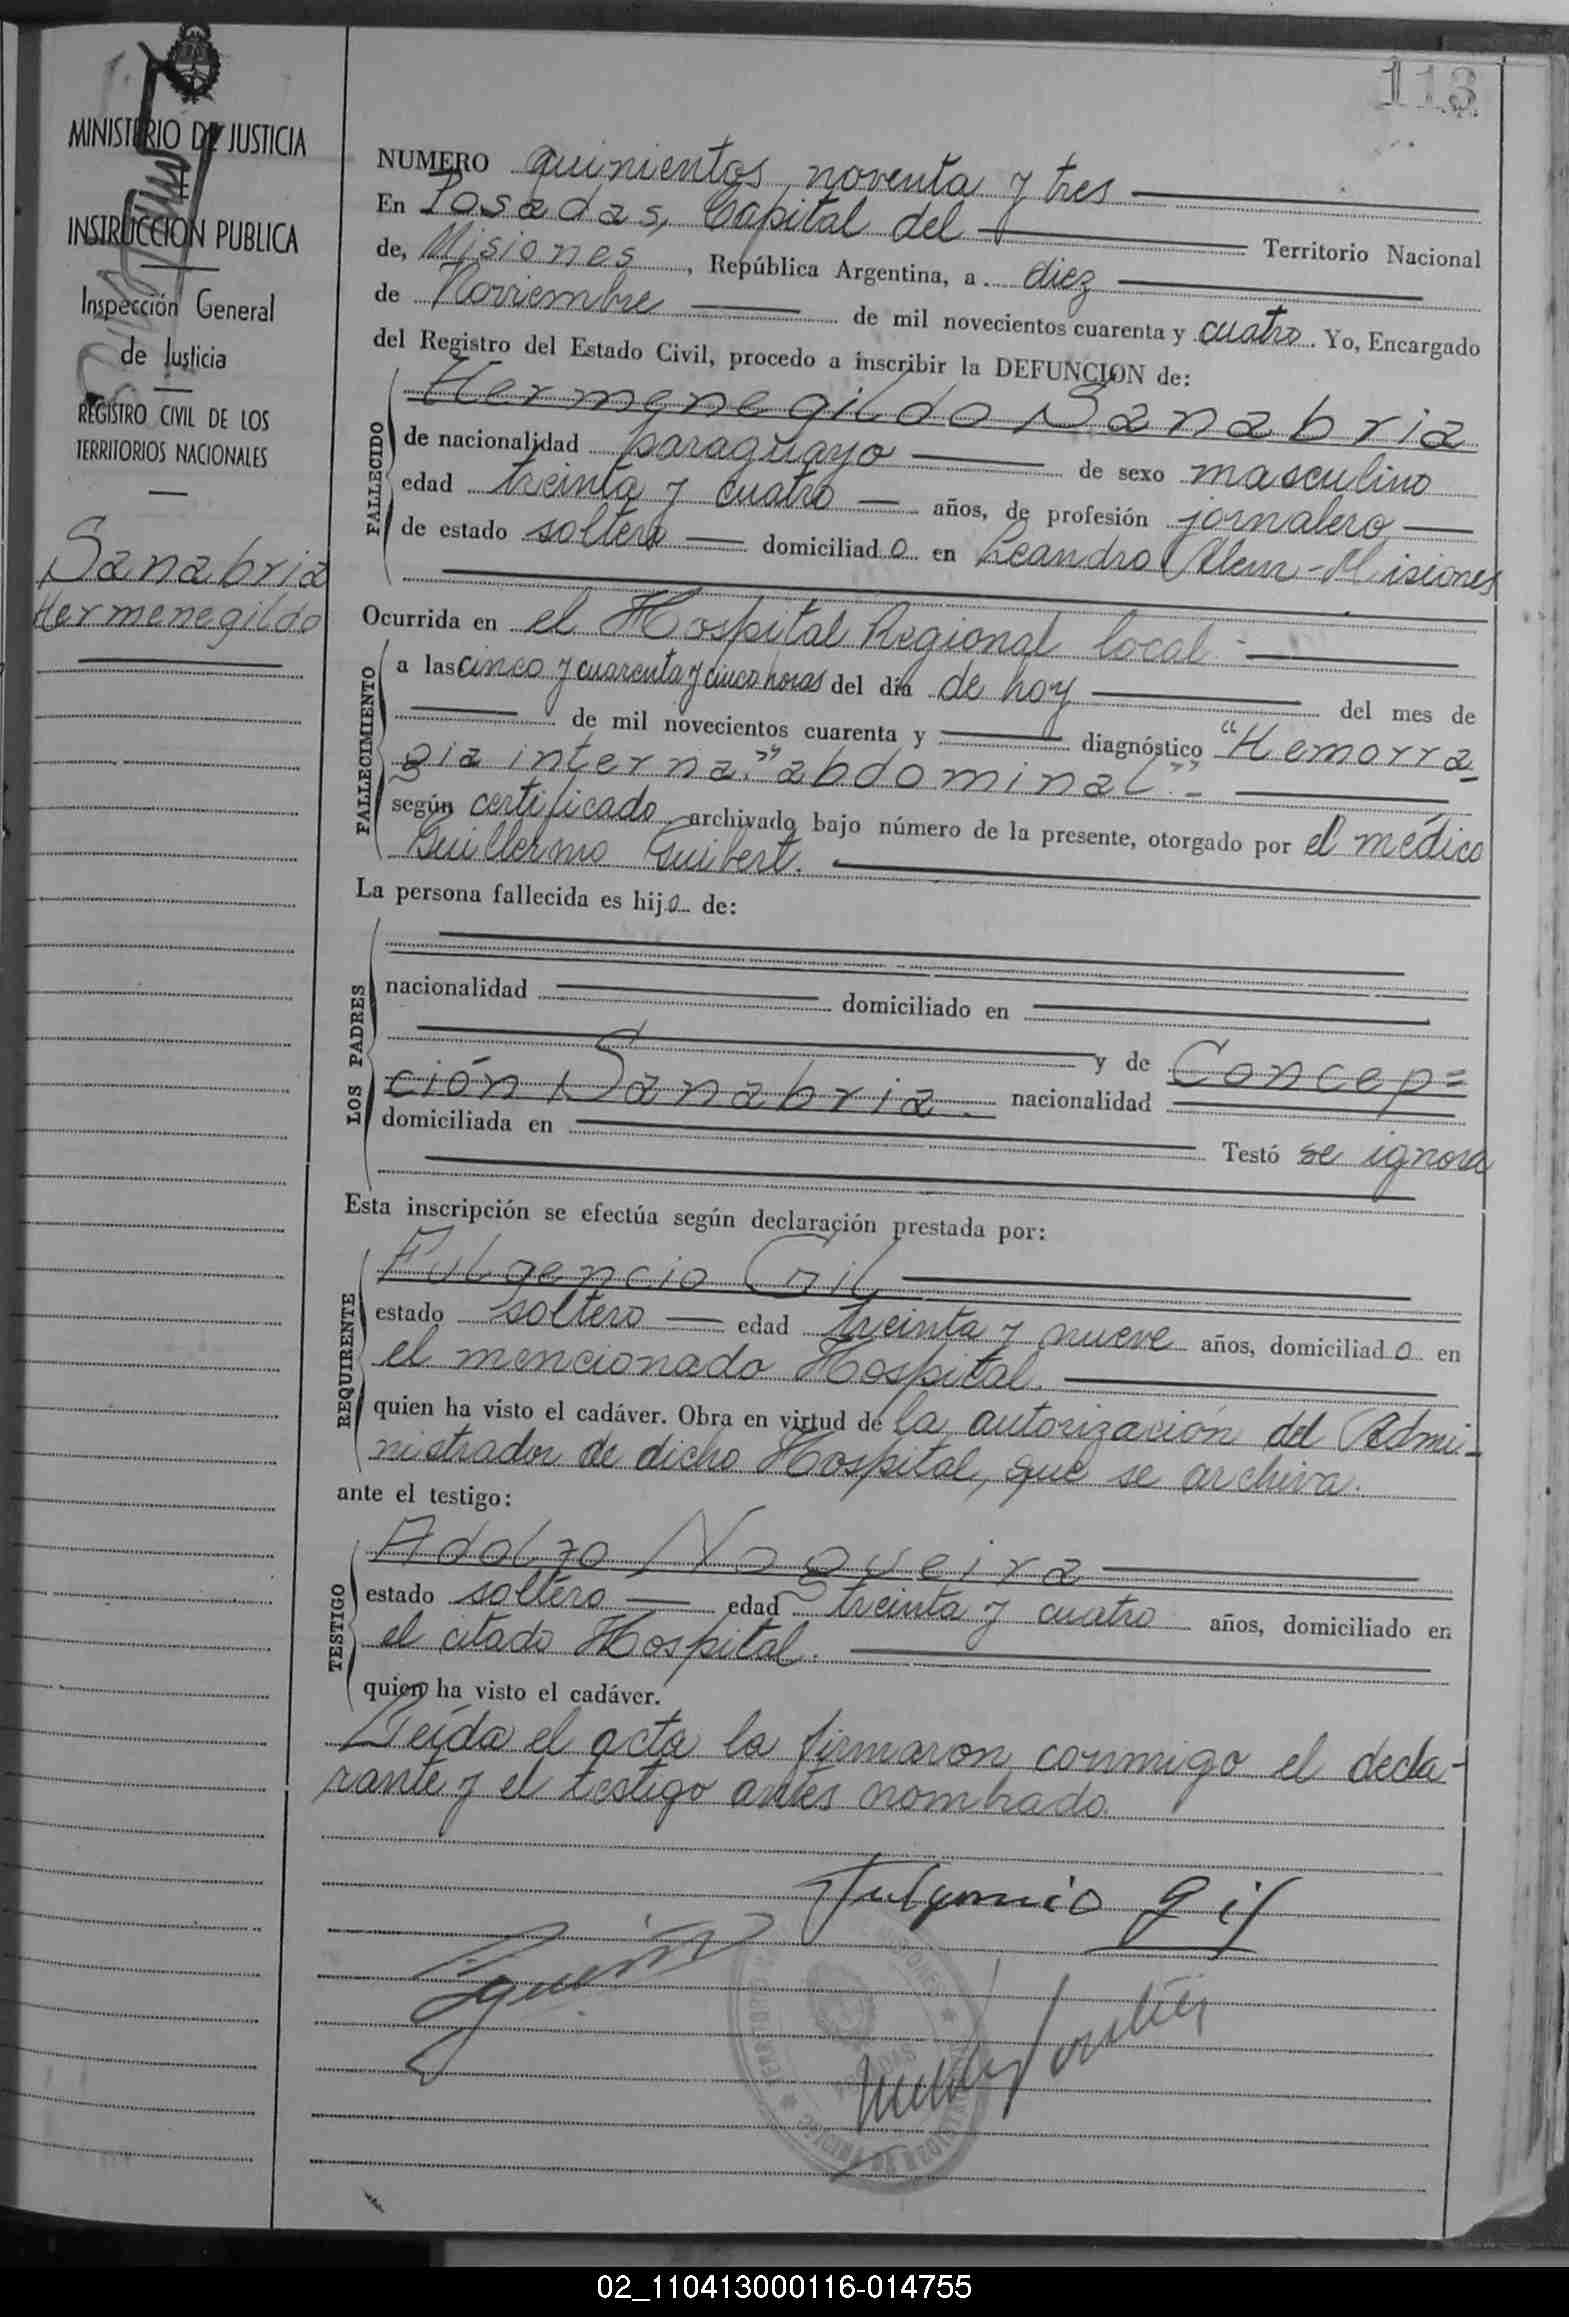 113
MINISTERIO DE JUSTICIA
E
INSTRUCCION PUBLICA
Inspección General
de Justicia
REGISTRO CIVIL DE LOS
TERRITORIOS NACIONALES
Sanabria
Hermenegildo
NUMERO quinientos noventa y tres
En Posadas, Capital del Territorio Nacional
de, Misiones, República Argentina, a diez
de Noviembre de mil novecientos cuarenta y cuatro. Yo, Encargado
del Registro del Estado Civil, procedo a inscribir la DEFUNCION de:
FALLECIDO
Hermenegildo Sanabria
de nacionalidad paraguayo de sexo masculino
edad treinta y cuatro años, de profesión jornalero
de estado soltero domiciliado en Leandro Alem-Misiones
Ocurrida en el Hospital Regional local.
FALLECIMIENTO
a las cinco y cuarenta y cinco horas del dia de hoy del mes de
de mil novecientos cuarenta y diagnóstico "Hemorra-
gia interna" "abdominal".-
según certificado archivado bajo número de la presente, otorgado por el médico
Guillermo Guibert.
La persona fallecida es hijo de:
LOS PADRES
nacionalidad domiciliado en
y de Concep=
ción Sanabria. nacionalidad
domiciliada en Testó se ignora
Esta inscripción se efectúa según declaración prestada por:
REQUIRENTE
Fulgencio Gil
estado soltero edad treinta y nueve años, domiciliado en
el mencionado Hospital.
quien ha visto el cadáver. Obra en virtud de la autorización del Admi-
nistrador de dicho Hospital, que se archiva.
ante el testigo:
TESTIGO
Adolfo Nogueira
estado soltero edad treinta y cuatro años, domiciliado en
el citado Hospital.
quien ha visto el cadáver.
Leída el acta la firmaron conmigo el decla-
rante y el testigo antes nombrado.
Fulgencio Gil
POSADAS
02_110413000116-014755